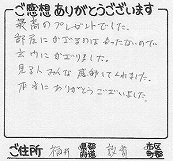 ご感想 ありがとうございます
最高のプレゼントでした。
部屋にかざるのはもったいないので
玄関にかざりました。
見る人みんな感動してくれました。
本当にありがとうございました。
ご住所 福井 都道府県 敦賀 市区町村